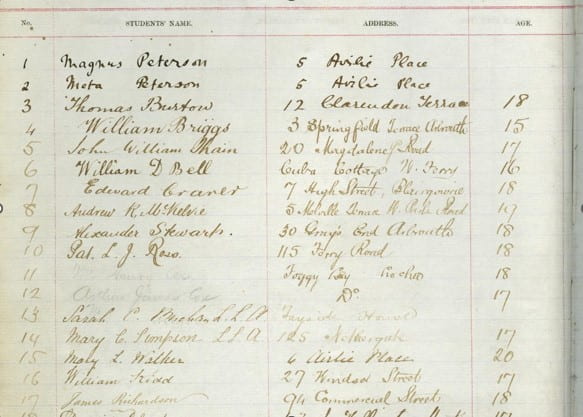 No. STUDENTS' NAME. ADDRESS. AGE.
1 Magnus Peterson 5 Airlie Place
2 Meta Peterson 5 Airlie Place
3 Thomas Burtow 12 Clarendon Terrace 18
4 William Briggs 3 Springfield Terrace Arbroath 15
5 John William Thain 20 Magdalene Road 17
6 William D Bell Cuba Cottage W. Ferry 16
7 Edward 7 High Street, Blairgowrie 18
8 Andrew K. McKelvie 5 Melville Terrace W. Road 19
9 Alexander Stewart 30 Gray's End Arbroath 18
10 Pat. L. J. Ross 115 Ferry Road 18
11 Foggy 18
12 Arthur James Cox Do 17
13 Sarah C. L.L.A. House
14 Mary C. Simpson L L A 125 Nethergate 17
15 Mary L. Walker 6 Airlie Place 20
16 William Kidd 27 Windsor Street 17
17 James Richardson 94 Commercial Street 18
18